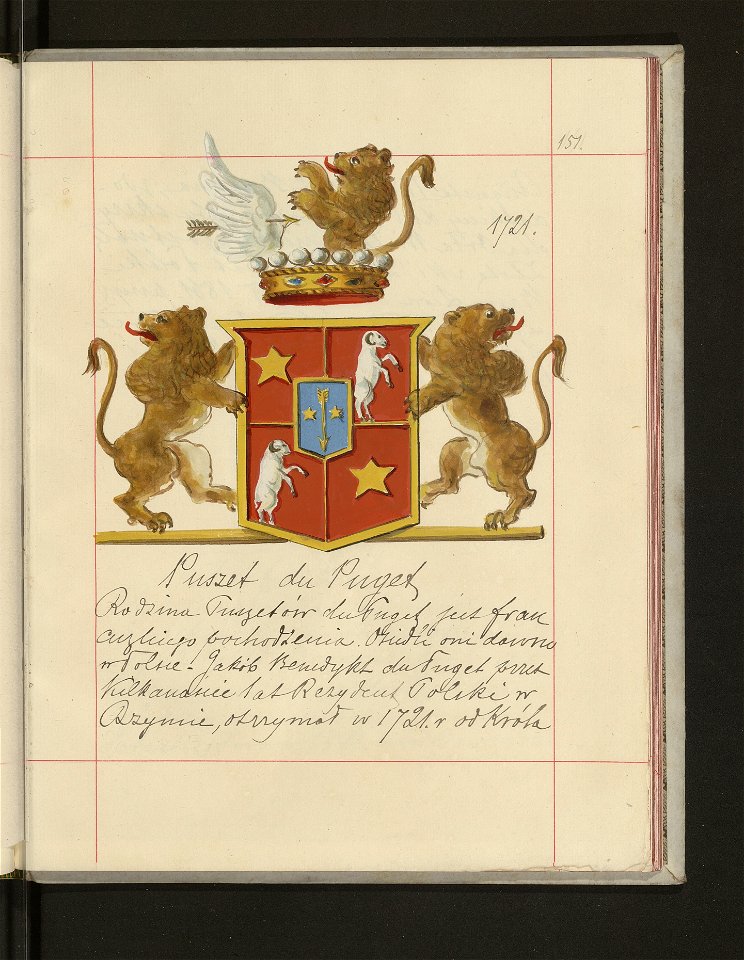 151.
1721.
Puszet du Puget
Rodzina Puszetów du Puget jest fran
cuzkiego pochodzenia. Osiedli oni dawno
w Polsce - Jakób Benedykt du Puget przez
kilkanaście lat Rezydent Polski w
Rzymie, otrzymał w 1721. r od Króla